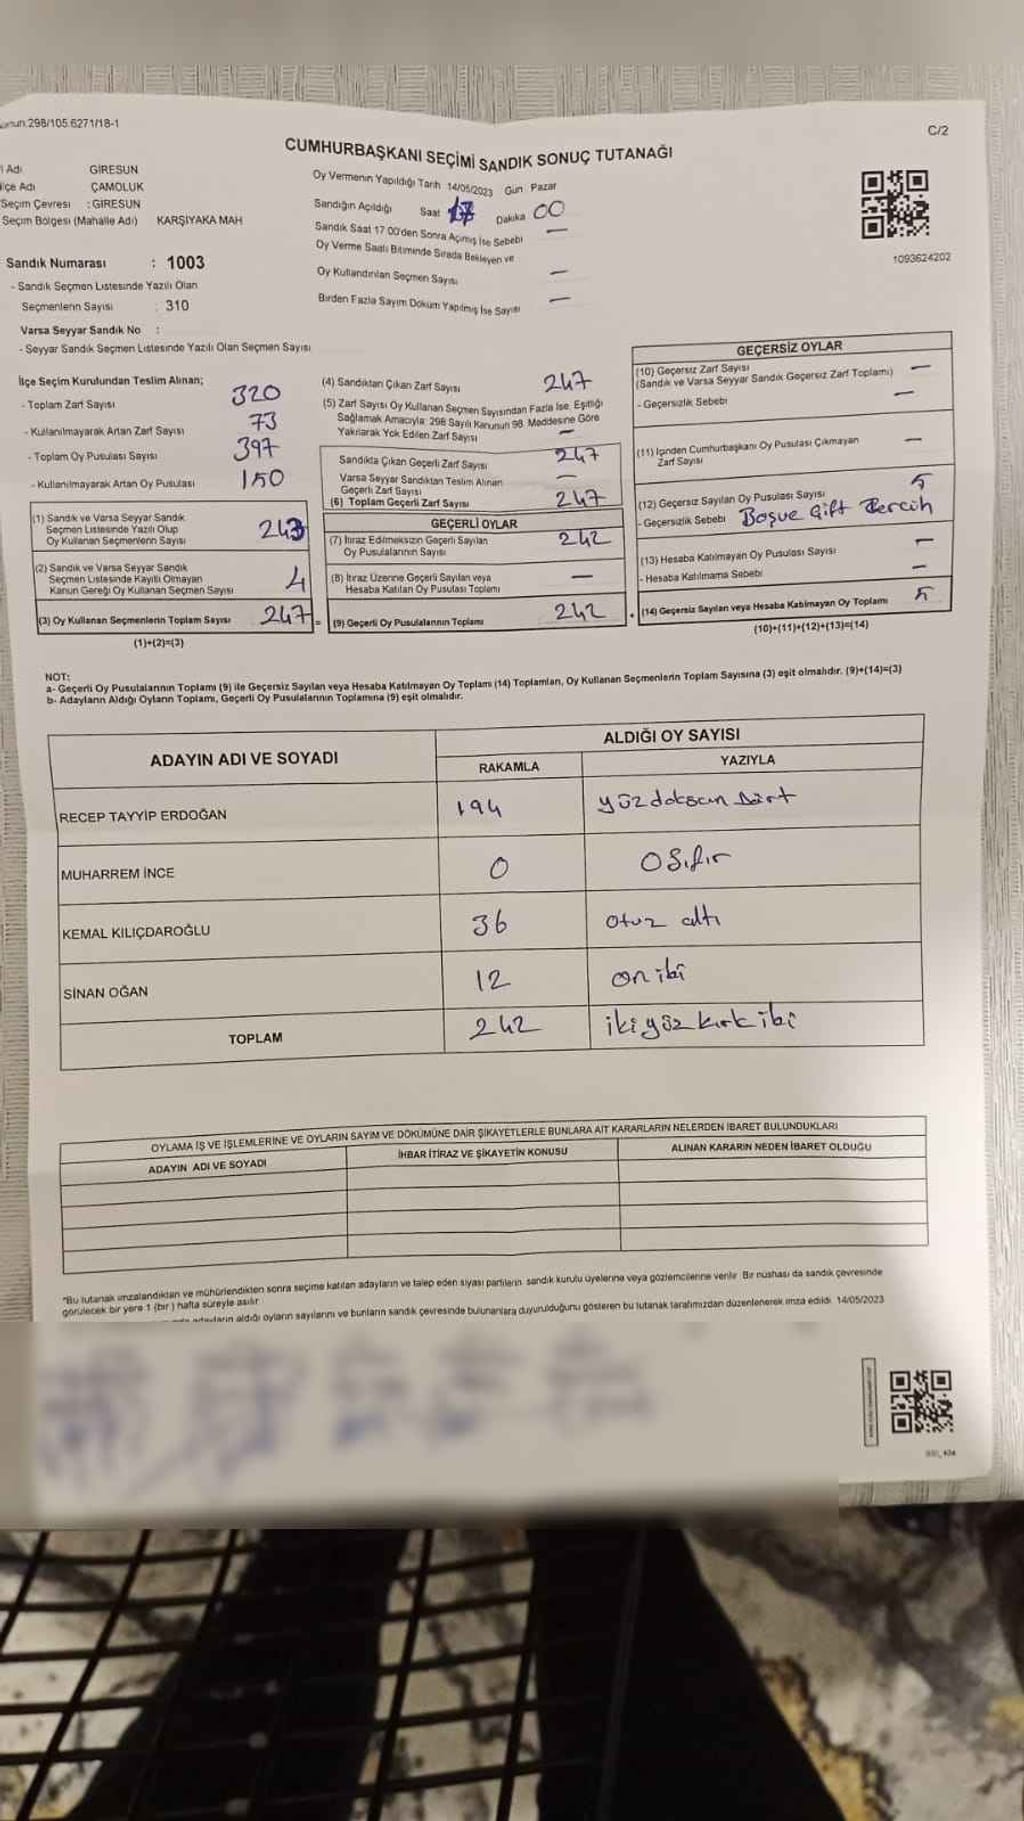 298/105.6271/18-1
C/2
CUMHURBAŞKANI SEÇİMİ SANDIK SONUÇ TUTANAĞI
Adı GİRESUN
ilçe Adı ÇAMOLUK
Seçim Çevresi : GİRESUN
Seçim Bölgesi (Mahalle Adı) KARŞIYAKA MAH
Sandık Numarası : 1003
- Sandık Seçmen Listesinde Yazılı Olan
Seçmenlerin Sayısı : 310
Varsa Seyyar Sandık No :
- Seyyar Sandık Seçmen Listesinde Yazılı Olan Seçmen Sayısı
Oy Vermenin Yapıldığı Tarih 14/05/2023 Gün Pazar
Sandığın Açıldığı Saat 17 Dakika 00
Sandık Saat 17 00'den Sonra Açılmış İse Sebebi —
Oy Verme Saati Bitiminde Sırada Bekleyen ve
Oy Kullandırılan Seçmen Sayısı —
Birden Fazla Sayım Döküm Yapılmış İse Sayısı —
1093624202
İlçe Seçim Kurulundan Teslim Alınan;
- Toplam Zarf Sayısı 320
- Kullanılmayarak Artan Zarf Sayısı 73
- Toplam Oy Pusulası Sayısı 397
- Kullanılmayarak Artan Oy Pusulası 150
(1) Sandık ve Varsa Seyyar Sandık
Seçmen Listesinde Yazılı Olup
Oy Kullanan Seçmenlerin Sayısı 243
(2) Sandık ve Varsa Seyyar Sandık
Seçmen Listesinde Kayıtlı Olmayan
Kanun Gereği Oy Kullanan Seçmen Sayısı 4
(3) Oy Kullanan Seçmenlerin Toplam Sayısı 247 =
(1)+(2)=(3)
(4) Sandıktan Çıkan Zarf Sayısı 247
(5) Zarf Sayısı Oy Kullanan Seçmen Sayısından Fazla İse, Eşitliği
Sağlamak Amacıyla 298 Sayılı Kanunun 98. Maddesine Göre
Yakılarak Yok Edilen Zarf Sayısı —
Sandıkta Çıkan Geçerli Zarf Sayısı 247
Varsa Seyyar Sandıktan Teslim Alınan
Geçerli Zarf Sayısı —
(6) Toplam Geçerli Zarf Sayısı 247
GEÇERLİ OYLAR
(7) İtiraz Edilmeksizin Geçerli Sayılan
Oy Pusulalarının Sayısı 242
(8) İtiraz Üzerine Geçerli Sayılan veya
Hesaba Katılan Oy Pusulası Toplamı —
(9) Geçerli Oy Pusulalarının Toplamı 242 +
GEÇERSİZ OYLAR
(10) Geçersiz Zarf Sayısı
(Sandık ve Varsa Seyyar Sandık Geçersiz Zarf Toplamı) —
- Geçersizlik Sebebi —
(11) İçinden Cumhurbaşkanı Oy Pusulası Çıkmayan
Zarf Sayısı —
(12) Geçersiz Sayılan Oy Pusulası Sayısı 5
- Geçersizlik Sebebi Boşve Gift Tercih
(13) Hesaba Katılmayan Oy Pusulası Sayısı —
- Hesaba Katılmama Sebebi —
(14) Geçersiz Sayılan veya Hesaba Katılmayan Oy Toplamı 5
(10)+(11)+(12)+(13)=(14)
NOT:
a- Geçerli Oy Pusulalarının Toplamı (9) ile Geçersiz Sayılan veya Hesaba Katılmayan Oy Toplamı (14) Toplamları, Oy Kullanan Seçmenlerin Toplam Sayısına (3) eşit olmalıdır. (9)+(14)=(3)
b- Adayların Aldığı Oyların Toplamı, Geçerli Oy Pusulalarının Toplamına (9) eşit olmalıdır.
ADAYIN ADI VE SOYADI ALDIĞI OY SAYISI
RAKAMLA YAZIYLA
RECEP TAYYİP ERDOĞAN 194 yüzdoksan Dört
MUHARREM İNCE 0 0 Sıfır
KEMAL KILIÇDAROĞLU 36 otuz altı
SİNAN OĞAN 12 on iki
TOPLAM 242 iki yüz kırk iki
OYLAMA İŞ VE İŞLEMLERİNE VE OYLARIN SAYIM VE DÖKÜMÜNE DAİR ŞİKAYETLERLE BUNLARA AİT KARARLARIN NELERDEN İBARET BULUNDUKLARI
ADAYIN ADI VE SOYADI İHBAR İTİRAZ VE ŞİKAYETİN KONUSU ALINAN KARARIN NEDEN İBARET OLDUĞU
"Bu tutanak imzalandıktan ve mühürlendikten sonra seçime katılan adayların ve talep eden siyasi partilerin sandık kurulu üyelerine veya gözlemcilerine verilir. Bir nüshası da sandık çevresinde
görülecek bir yere 1 (bir) hafta süreyle asılır.
adayların aldığı oyların sayılarını ve bunların sandık çevresinde bulunanlara duyurulduğunu gösteren bu tutanak tarafımızdan düzenlenerek imza edildi. 14/05/2023